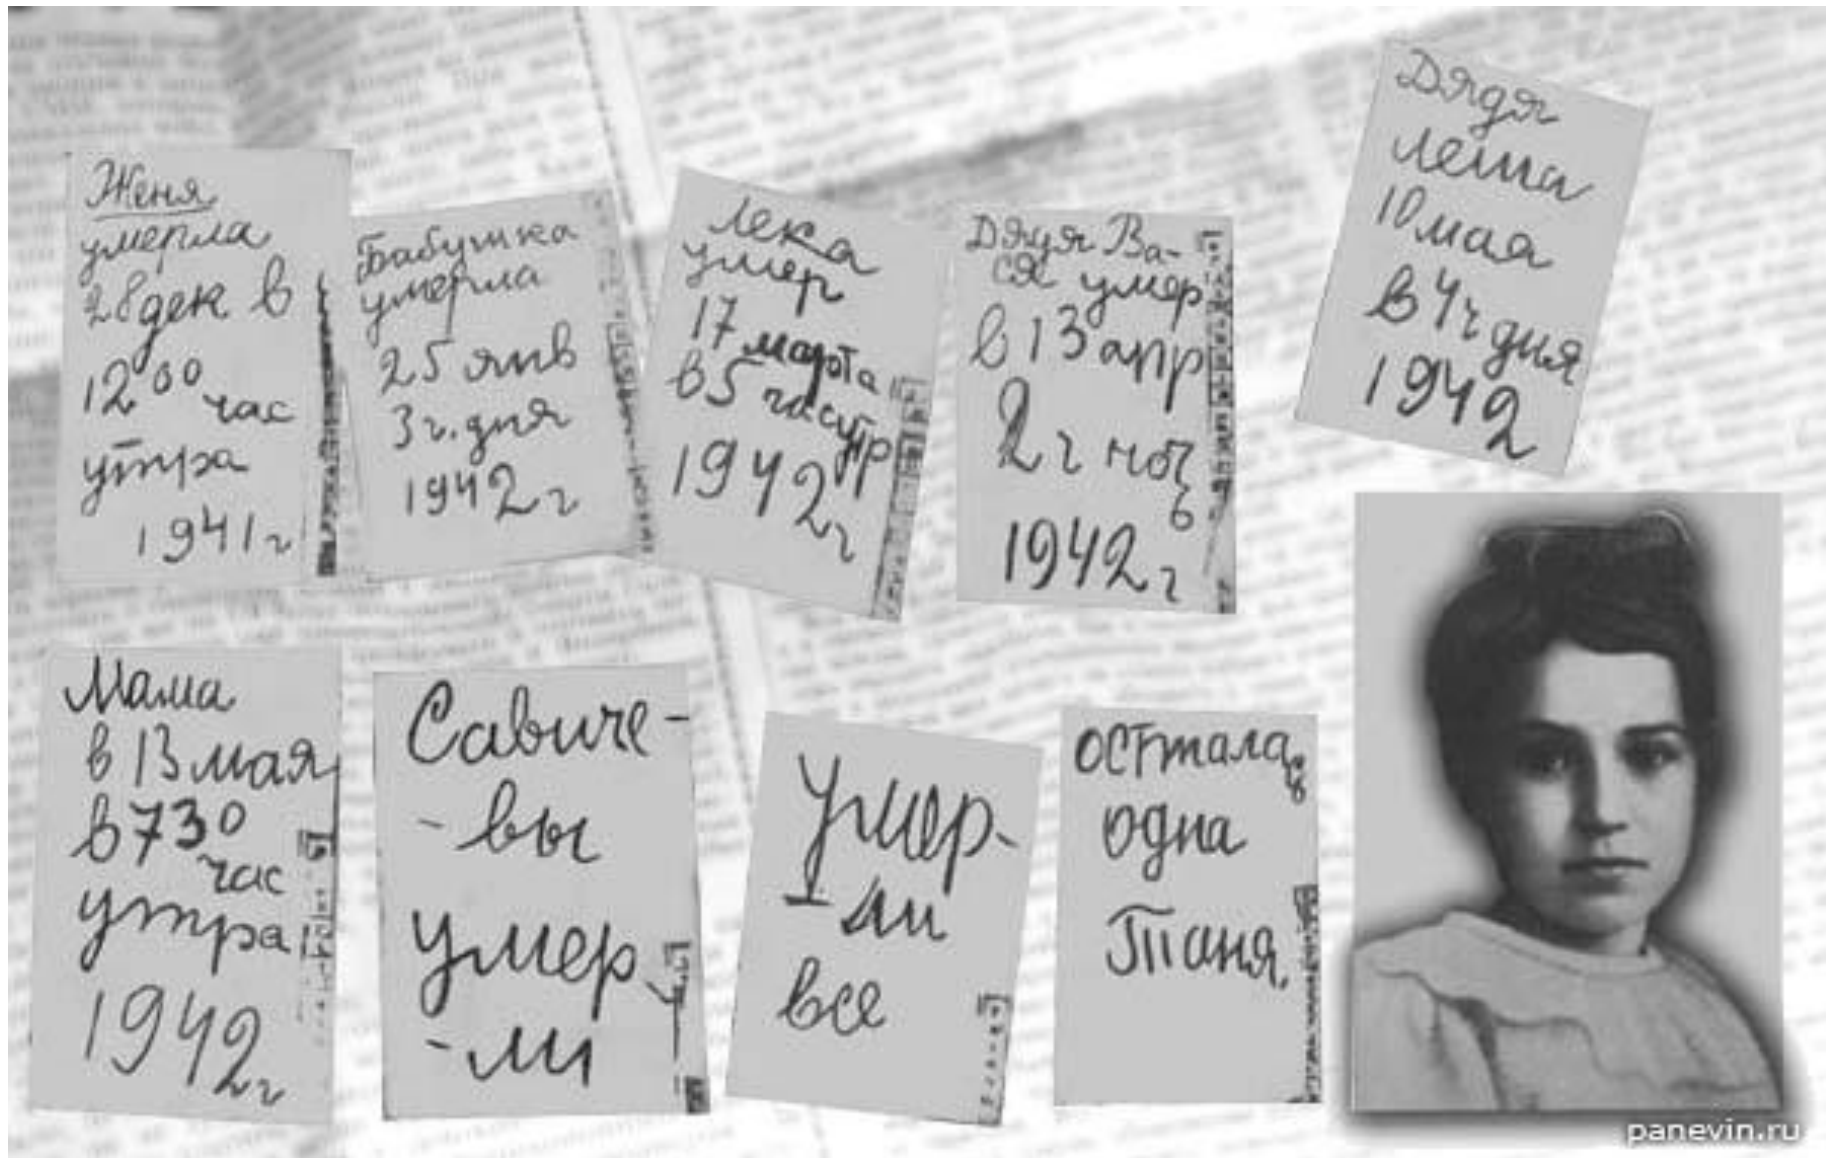 Женя
умерла
28 дек в
12 00 час
утра
1941 г
Бабушка
умерла
25 янв
3 ч. дня
1942 г
Лека
умер
17
марта
в 5 час утр
1942 г
Дядя Ва-
ся умер
в 13 апр
2 ч ноч
ь
1942 г
Дядя
Леша
10 мая
в 4 ч дня
1942
Мама
в 13 мая
в 7 30
час
утра
1942 г
Савиче-
-вы
умер
-ли
Умер-
-ли
все
Осталась
одна
Таня.
panevin.ru